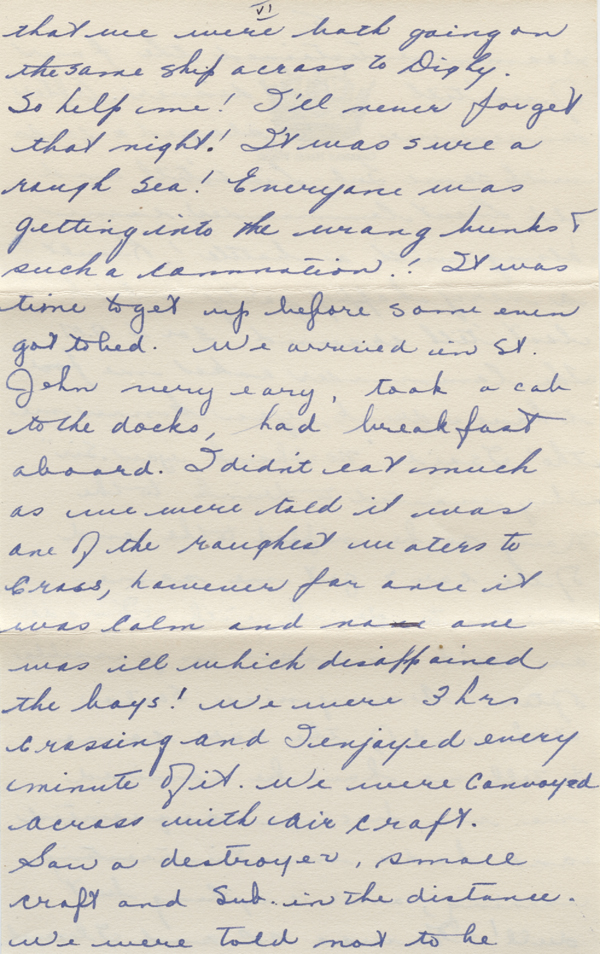 VI
that we were both going on
the same ship across to Digby.
So help me! I'll never forget
that night! It was sure a
rough sea! Everyone was
getting into the wrong bunks &
such a commotion!! It was
time to get up before some even
got to bed. We arrived in St.
John very eary, took a cab
to the docks, had breakfast
aboard. I didn't eat much
as we were told it was
one of the roughest waters to
cross, however for once it
was calm and no one
was ill which disappained
the boys! We were 3 hrs
crossing and I enjoyed every
minute of it. We were convoyed
across with air craft.
Saw a destroyer, small
craft and Sub. in the distance.
We were told not to be